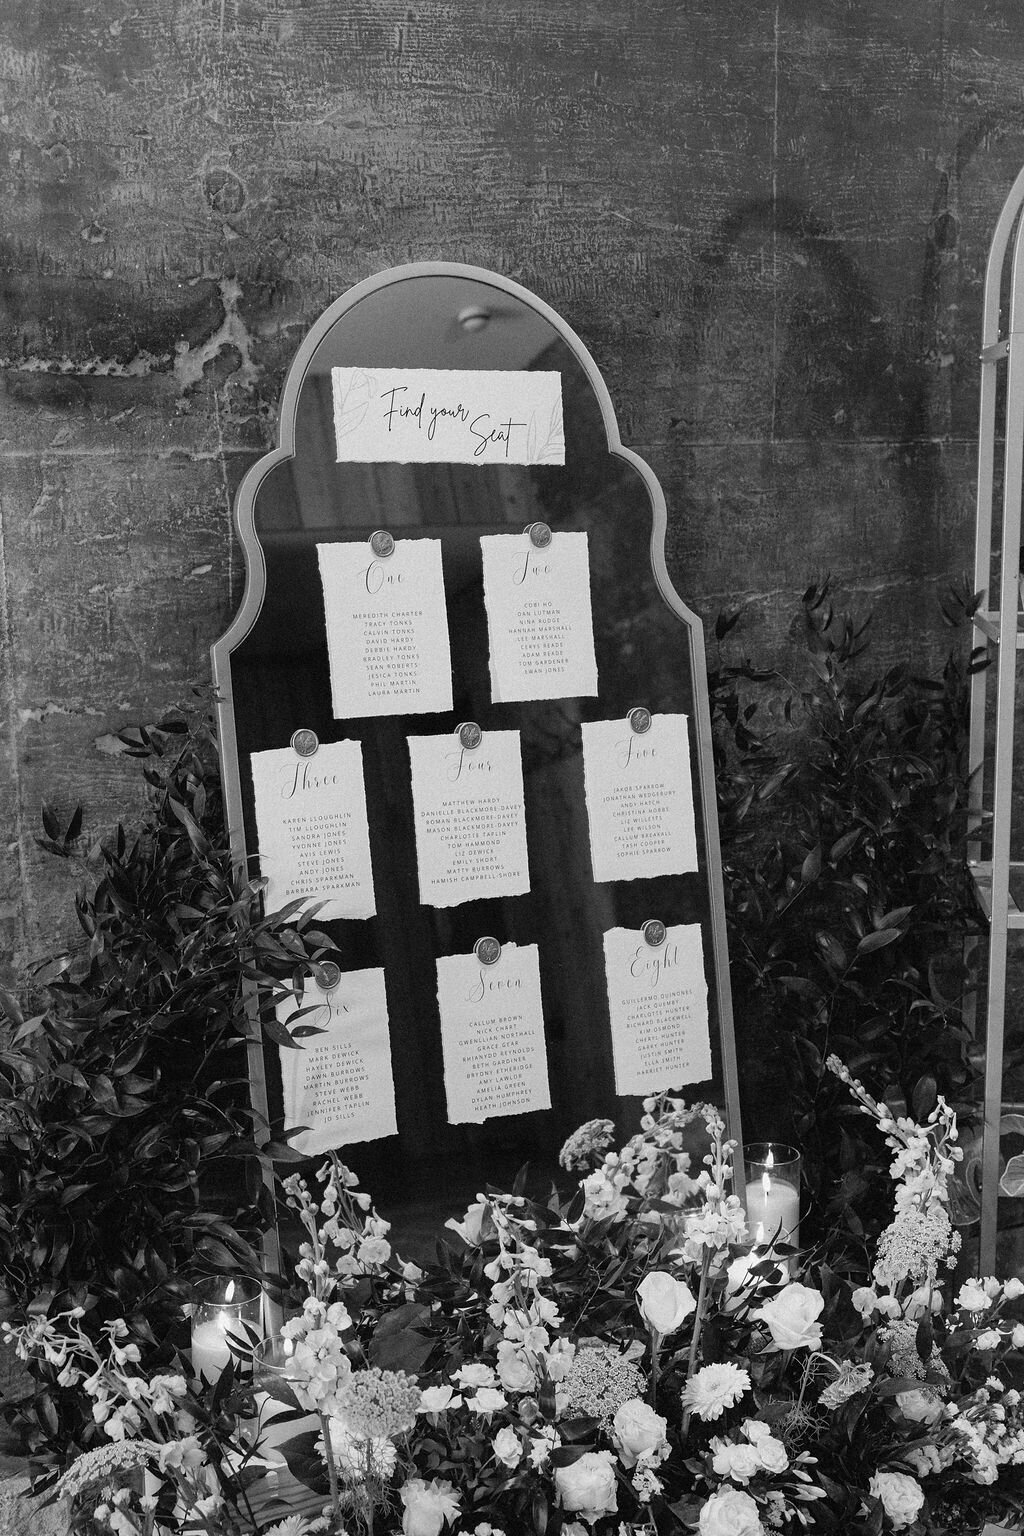 Find your
Seat
One
MEREDITH CHARTER
TRACY TONKS
CALVIN TONKS
DAVID HARDY
DEBBIE HARDY
BRADLEY TONKS
SEAN ROBERTS
JESICA TONKS
PHIL MARTIN
LAURA MARTIN
Two
COBI HO
DAN LUTMAN
NINA RUDGE
HANNAH MARSHALL
LEE MARSHALL
CERYS READE
ADAM READE
TOM GARDENER
EWAN JONES
Three
KAREN LLOUGHLIN
TIM LLOUGHLIN
SANDRA JONES
YVONNE JONES
AVIS LEWIS
STEVE JONES
ANDY JONES
CHRIS SPARKMAN
BARBARA SPARKMAN
Four
MATTHEW HARDY
DANIELLE BLACKMORE-DAVEY
ROMAN BLACKMORE-DAVEY
MASON BLACKMORE-DAVEY
CHARLOTTE TAPLIN
TOM HAMMOND
LIZ DEWICK
EMILY SHORT
MATTY BURROWS
HAMISH CAMPBELL-SHORE
Five
JAKOB SPARROW
JONATHAN WEDGEBURY
ANDY HATCH
CHRISTINA HOBBS
LIZ WILLETS
LEE WILSON
CALLUM BREAKALL
TASH COOPER
SOPHIE SPARROW
Six
BEN SILLS
MARK DEWICK
HAYLEY DEWICK
DAWN BURROWS
MARTIN BURROWS
STEVE WEBB
RACHEL WEBB
JENNIFER TAPLIN
JO SILLS
Seven
CALLUM BROWN
NICK CHART
GWENLLIAN NORTHALL
GRACE GEAR
RHIANYDD REYNOLDS
BETH GARDINER
BRYONY ETHERIDGE
AMY LAWLOR
AMELIA GREEN
DYLAN HUMPHREY
HEATH JOHNSON
Eight
GUILLERMO QUINONES
JACK QUEMBY
CHARLOTTE HUNTER
RICHARD BLACKWELL
KIM OSMOND
CHERYL HUNTER
GARRY HUNTER
JUSTIN SMITH
ELLA SMITH
HARRIET HUNTER